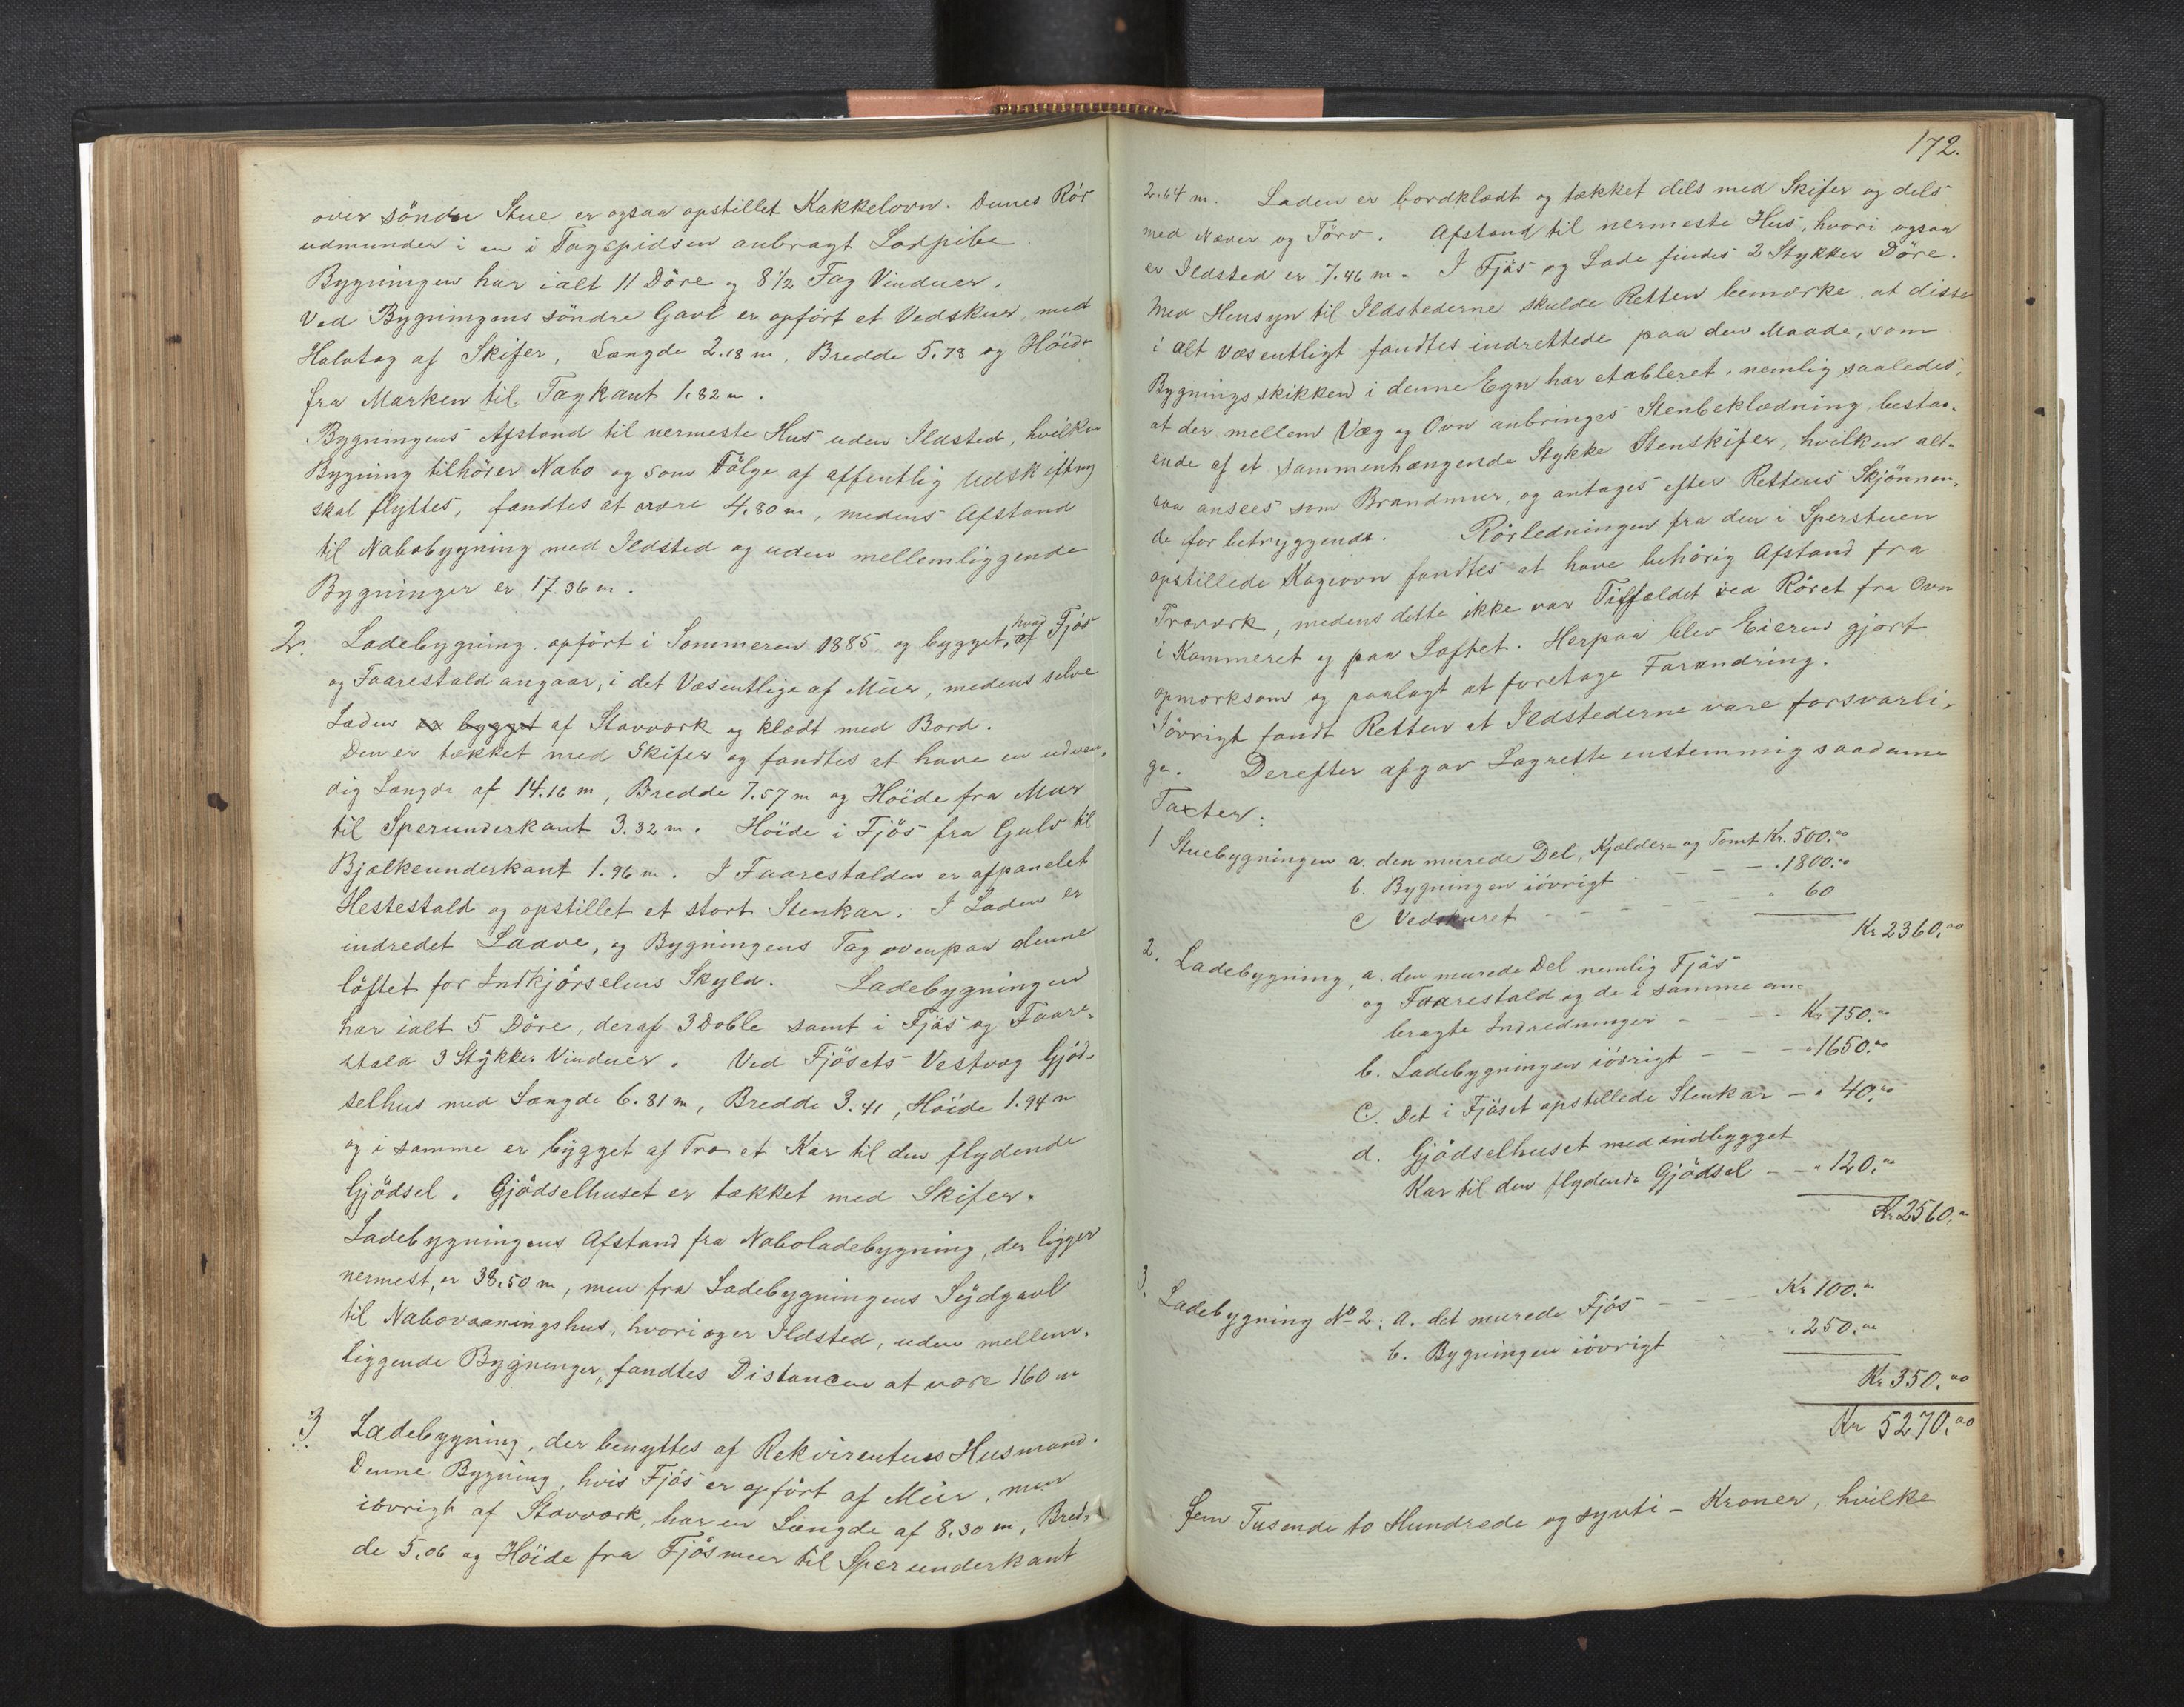 over söndre Stue er ogsaa opstillet Kakkelovn. Dennes Rör
udmunder i en i Tagspidsen anbragt Lodpibe.
Bygningen har ialt 11 Döre og 8 1/2 Fag Vinduer.
Ved Bygningens söndre Gavl er opfört et Vedskur med
Halvtag af Skifer, Længde 2.18 m, Bredde 5.78 og Höide
fra Marken til Tagkant 1.82 m.
Bygningens Afstand til nermeste Hus uden Ildsted, hvilken
Bygning tilhörer Nabo og som Fölge af offentlig Udskiftning
skal flyttes, fandtes at være 4.80 m, medens Afstand
til Nabobygning med Ildsted og uden mellemliggende
Bygninger er 17.36 m.
2. Ladebygning, opfört i Sommeren 1885, og bygget, hvad Fjös
og Faarestald angaar, i det Væsentlige af Mur, medens selve
Laden er bygget af Stavværk og klædt med Bord.
Den er tækket med Skifer og fandtes at have en udven-
dig Længde af 14.16 m, Bredde 7.57 m og Höide fra Mur
til Sperunderkant 3.32 m. Höide i Fjös fra Gulv til
Bjælkeunderkant 1.96 m. I Faarestalden er afpanelet
Hestestald og opstillet et stort Stenkar. I Laden er
indredet Laave, og Bygningens Tag ovenpaa denne
löftet for Indkjörselens Skyld. Ladebygningen
har ialt 5 Döre, deraf 3 Doble samt i Fjös og Faare-
stald 3 Stykker Vinduer. Ved Fjösets Vestvæg Gjöd-
selhus med Længde 6.81 m, Bredde 3.41, Höide 1.94 m
og i samme er bygget af Træ et Kar til den flydende
Gjödsel. Gjödselhuset er tækket med Skifer.
Ladebygningens Afstand fra Naboladebygning, der ligger
nermest, er 38.50 m, men fra Ladebygningens Sydgavl
til Nabovaaningshus, hvori og er Ildsted, uden mellem-
liggende Bygninger, fandtes Distancen at være 160 m
3. Ladebygning, der benyttes af Rekvirentens Husmand.
Denne Bygning, hvis Fjös er opfört af Mur, men
iövrigt af Stavværk, har en Længde af 8.30 m, Bred-
de 5.06 og Höide fra Fjösmur til Sperunderkant
172.
2.64 m. Laden er bordklædt og tækket dels med Skifer og dels
med Næver og Törv. Afstand til nermeste Hus, hvori ogsaa
er Ildsted er 7.46 m. I Fjös og Lade findes 2 Stykker Döre.
Med Hensyn til Ildstederne skulde Retten bemærke, at disse
i alt væsentligt fandtes indrettede paa den Maade, som
Bygningsskikken i denne Egn har etableret, nemlig saaledes,
at der mellem Væg og Ovn anbringes Stenbeklædning, bestaa-
ende af et sammenhængende Stykke Stenskifer, hvilken alt-
saa ansees som Brandmur, og antages efter Rettens Skjönnen-
de for betryggende. Rörledningen fra den i Sperstuen
opstillede Kogeovn fandtes at have behörig Afstand fra
Træværk, medens dette ikke var Tilfældet ved Röret fra Ovn
i Kammeret og paa Loftet. Herpaa blev Eieren gjort
opmærksom og paalagt at foretage Forandring.
Iövrigt fandt Retten at Ildstederne vare forsvarli-
ge. Derefter afgav Lagrette enstemmig saadanne
Taxter:
1 Stuebygningen a. den murede Del, Kjælder og Tomt Kr. 500.00
b. Bygningen iövrigt - - - " 1800.00
c Vedskuret - - - - " 60
Kr 2360.00
2. Ladebygning, a. den murede Del nemlig Fjös
og Faarestald og de i samme an-
bragte Indredninger - - - Kr 750.00
b. Ladebygningen iövrigt - - - " 1650.00
c. Det i Fjöset opstillede Stenkar - " 40.00
d. Gjödselhuset med indbygget
Kar til den flydende Gjödsel - - " 120.00
Kr 2560.00
3. Ladebygning No 2: a. det murede Fjös - - - Kr 100.00
b. Bygningen iövrigt " 250.00
Kr 350.00
Kr 5270.00
Fem Tusende to Hundrede og sytti - Kroner, hvilke